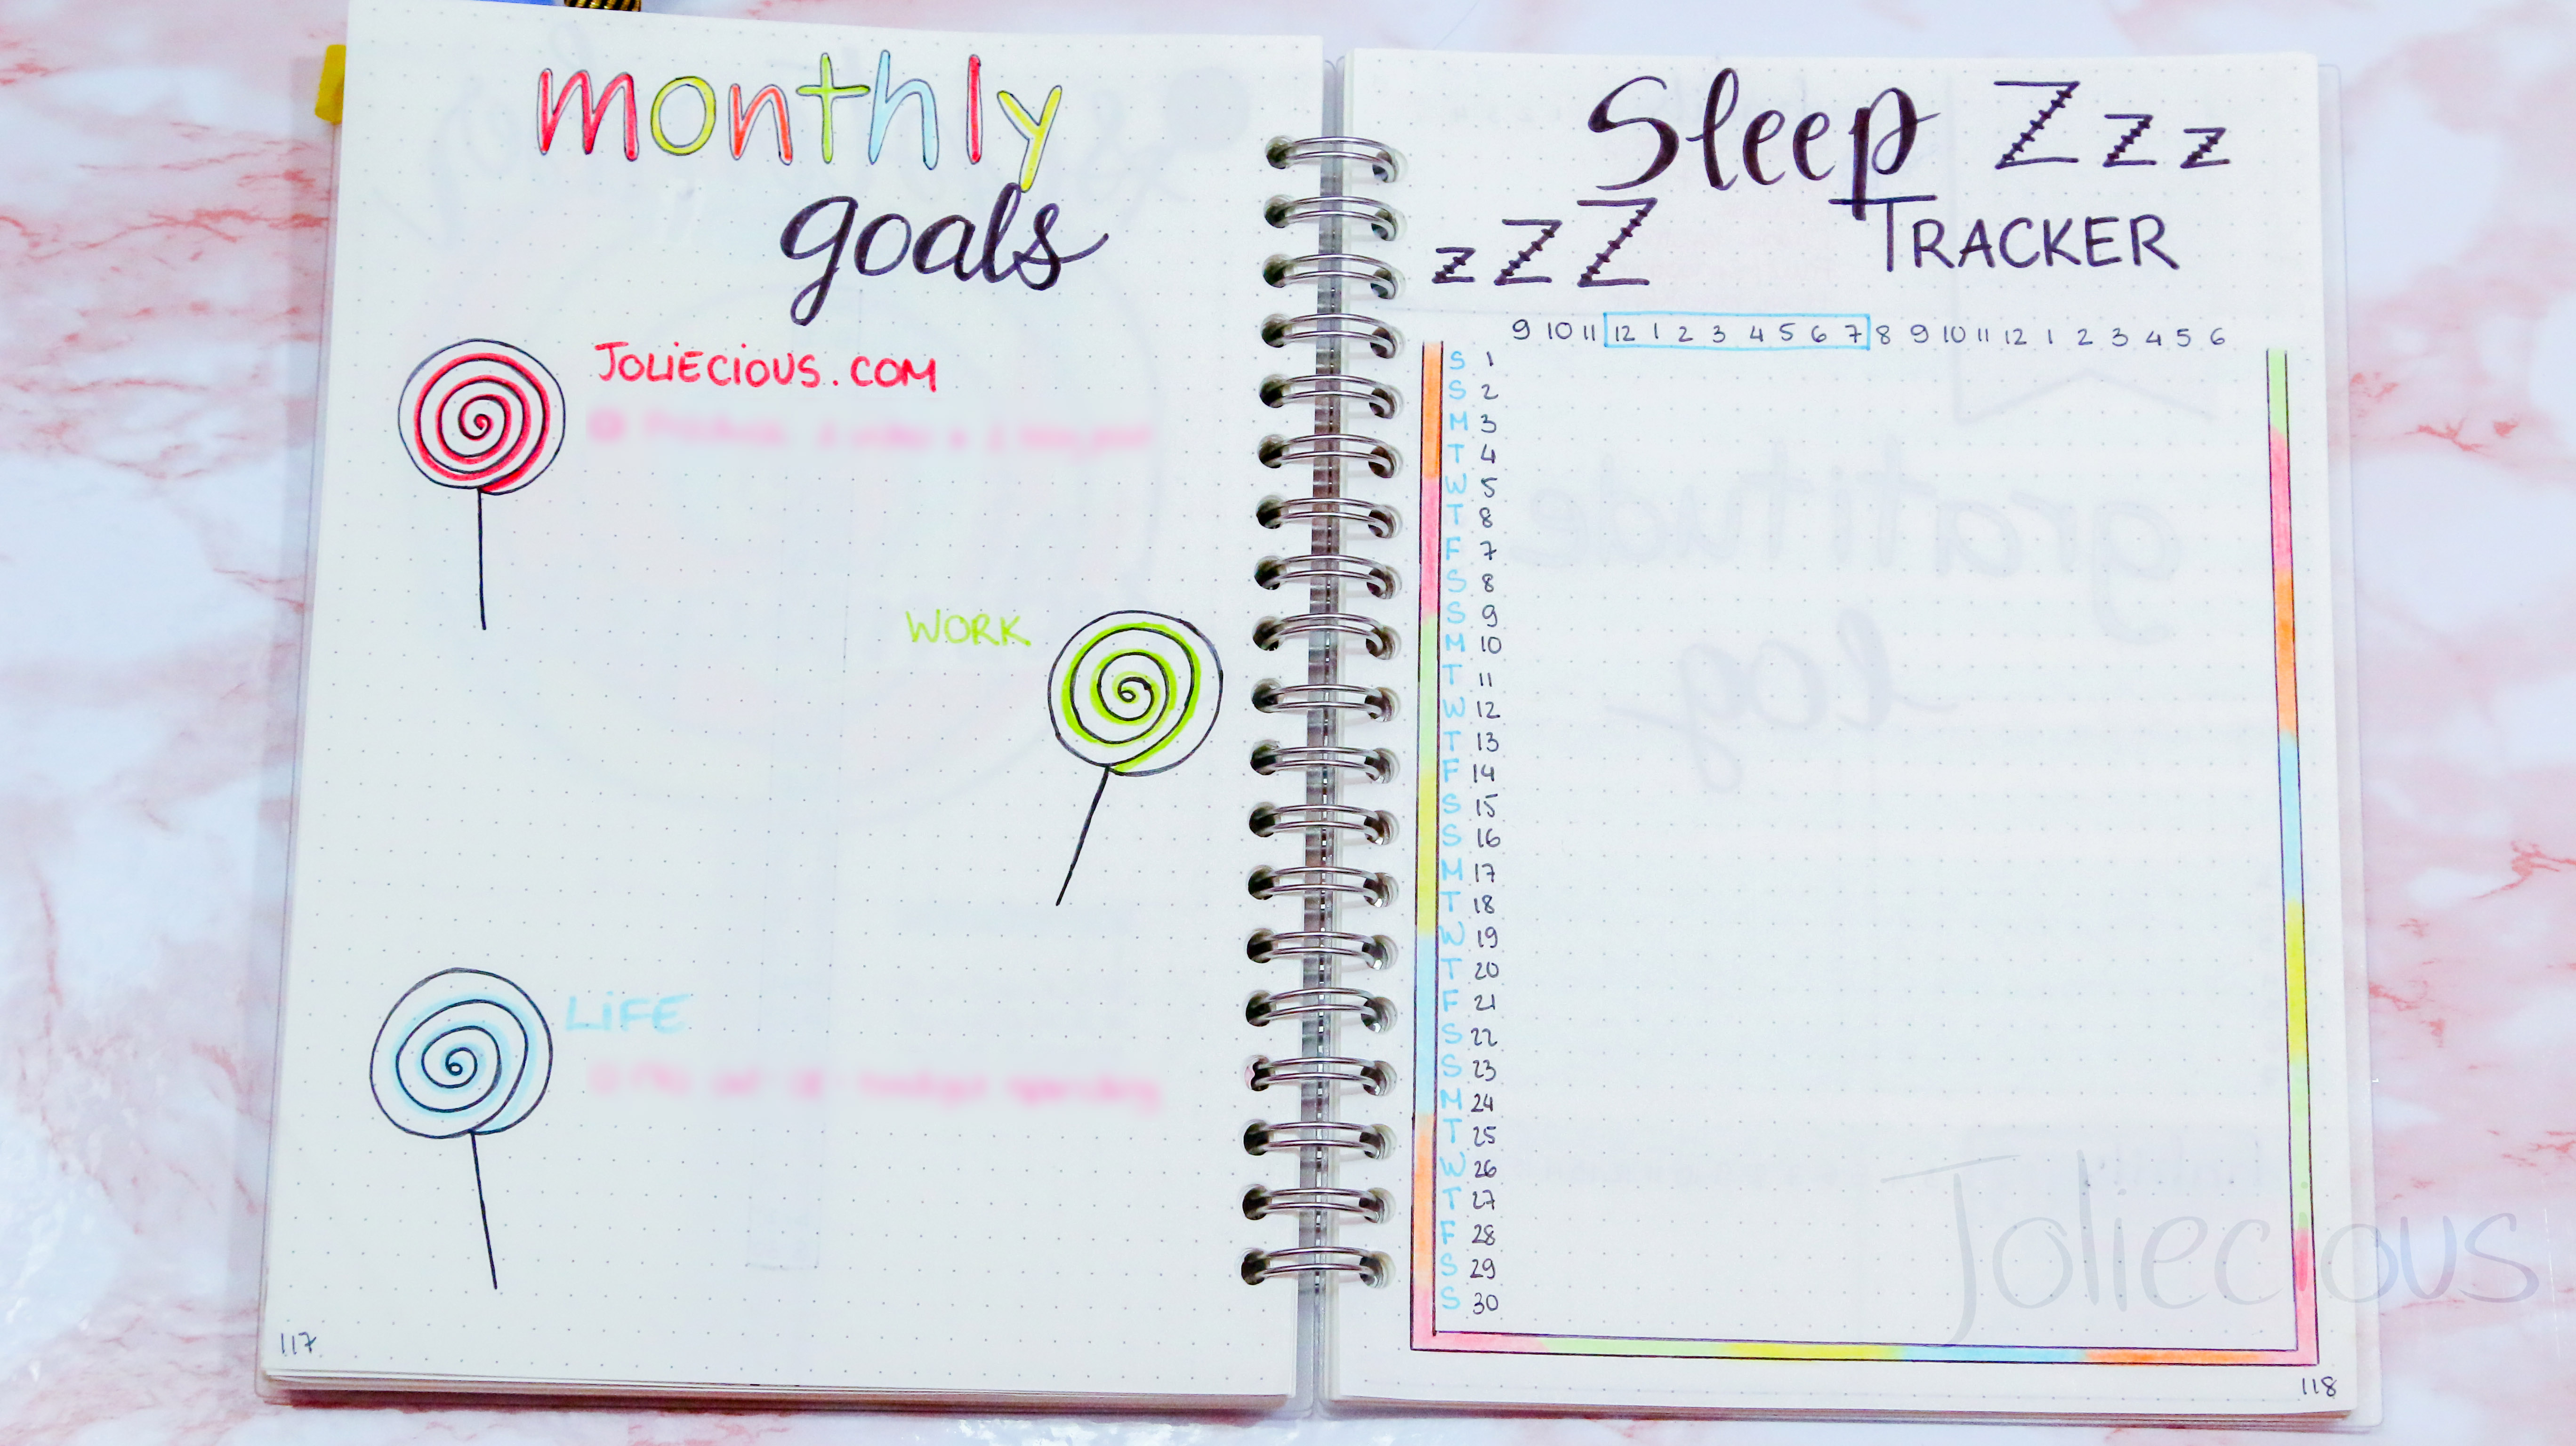 monthly
goals
JOLiECiOUS.COM
WORK
LiFE
117
Sleep Zzz
zZZ TRACKER
9 10 11 12 1 2 3 4 5 6 7 8 9 10 11 12 1 2 3 4 5 6
S 1
S 2
M 3
T 4
W 5
T 8
F 7
S 8
S 9
M 10
T 11
W 12
T 13
F 14
S 15
S 16
M 17
T 18
W 19
T 20
F 21
S 22
S 23
M 24
T 25
W 26
T 27
F 28
S 29
S 30
Joliecious
118